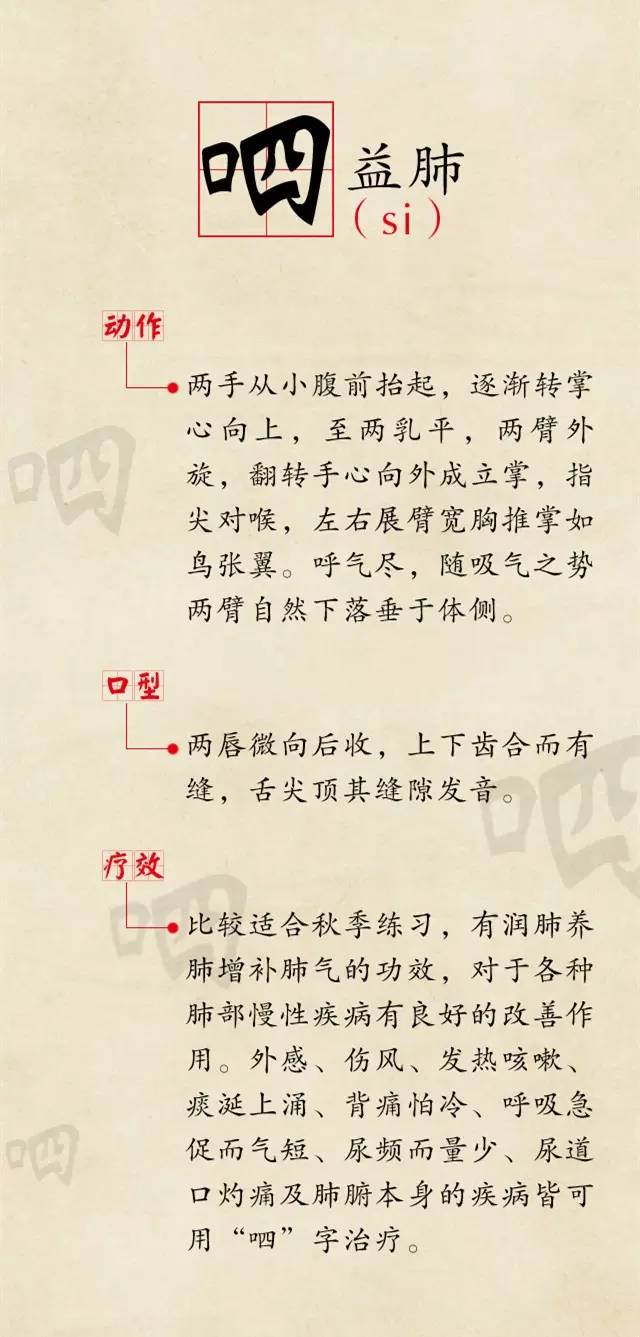 呬
益肺
（si）
动作
两手从小腹前抬起，逐渐转掌
心向上，至两乳平，两臂外
旋，翻转手心向外成立掌，指
尖对喉，左右展臂宽胸推掌如
鸟张翼。呼气尽，随吸气之势
两臂自然下落垂于体侧。
呬
口型
两唇微向后收，上下齿合而有
缝，舌尖顶其缝隙发音。
呬
疗效
呬
比较适合秋季练习，有润肺养
肺增补肺气的功效，对于各种
肺部慢性疾病有良好的改善作
用。外感、伤风、发热咳嗽、
痰涎上涌、背痛怕冷、呼吸急
促而气短、尿频而量少、尿道
口灼痛及肺腑本身的疾病皆可
用“呬”字治疗。
呬